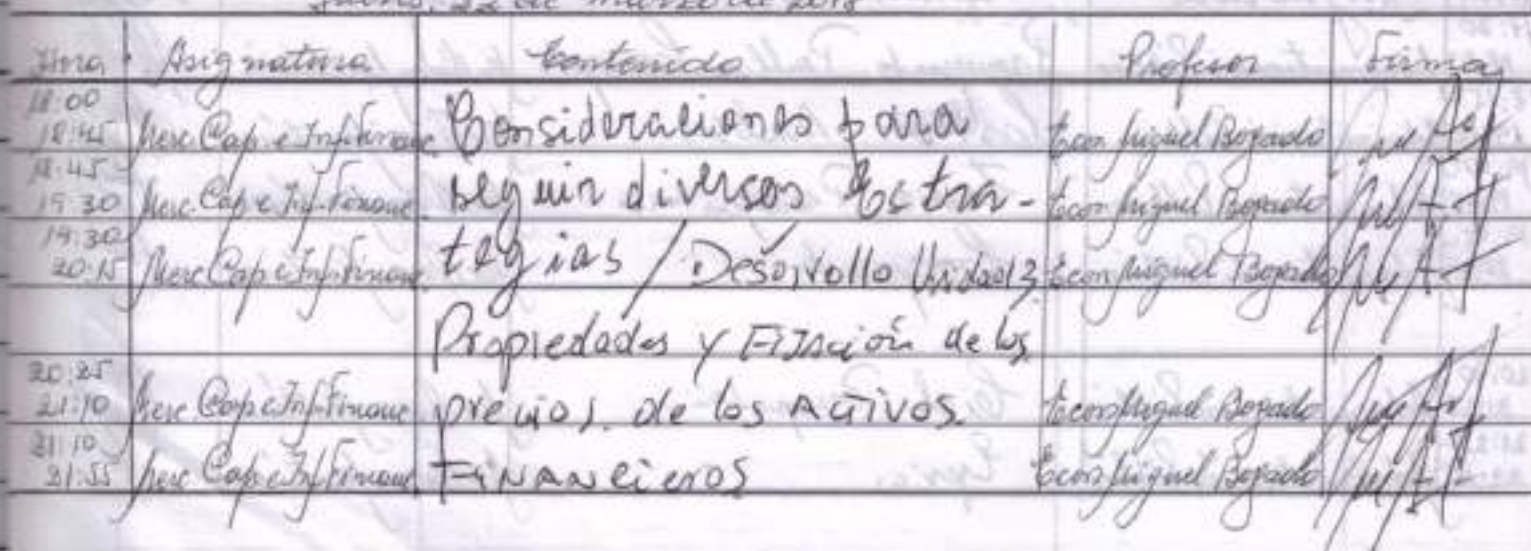 22 de marzo de 2018
Hora Asignatura Contenido Profesor Firma
18:00
18:45 Merc. Cap. e Inf. Financ. Consideraciones para Econ Miguel Bogado
18:45
19:30 Merc. Cap e Inf. Financ. seguir diversos Estra-
Econ Miguel Bogado
19:30
20:15 Merc Cap e Inf. Financ. tegias / Desarrollo Unidad 3 Econ Miguel Bogado
Propiedades y Fijación de los
20:25
21:10 Merc Cap e Inf. Financ precios de los Activos. Econ Miguel Bogado
21:10
21:55 Merc Cap e Inf. Financ Financieros Econ Miguel Bogado